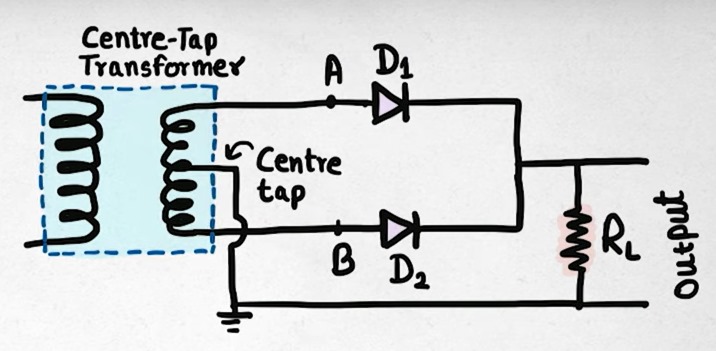 Centre-Tap
Transformer
A
D1
Centre
tap
B
D2
RL
Output